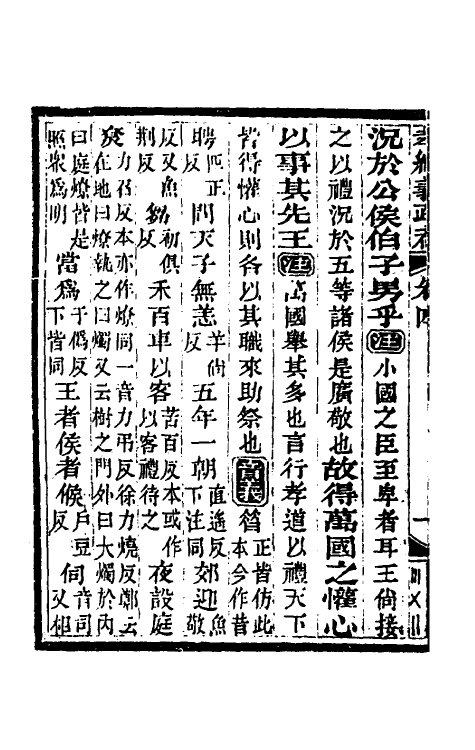 孝經義疏補 卷四
況於公侯伯子男乎注小國之臣至卑者耳王尙接
之以禮況於五等諸侯是廣敬也故得萬國之懽心
以事其先王注萬國舉其多也言行孝道以禮天下
皆得懽心則各以其職來助祭也音義 正皆仿此本今作
聘匹正反問天子無恙羊尙反五年一朝直遙反下注同郊迎魚敬
反又魚荊反芻初俱反禾百車以客苦百反本或作以客禮待之夜設庭
力召反本亦作燎同一音力弔反徐力燒反鄭云在地曰燎執之曰燭又云樹之門外曰大燭於內
曰庭燎皆是照眾爲明當爲于僞反下皆同王者侯者候戶豆反伺音司又相